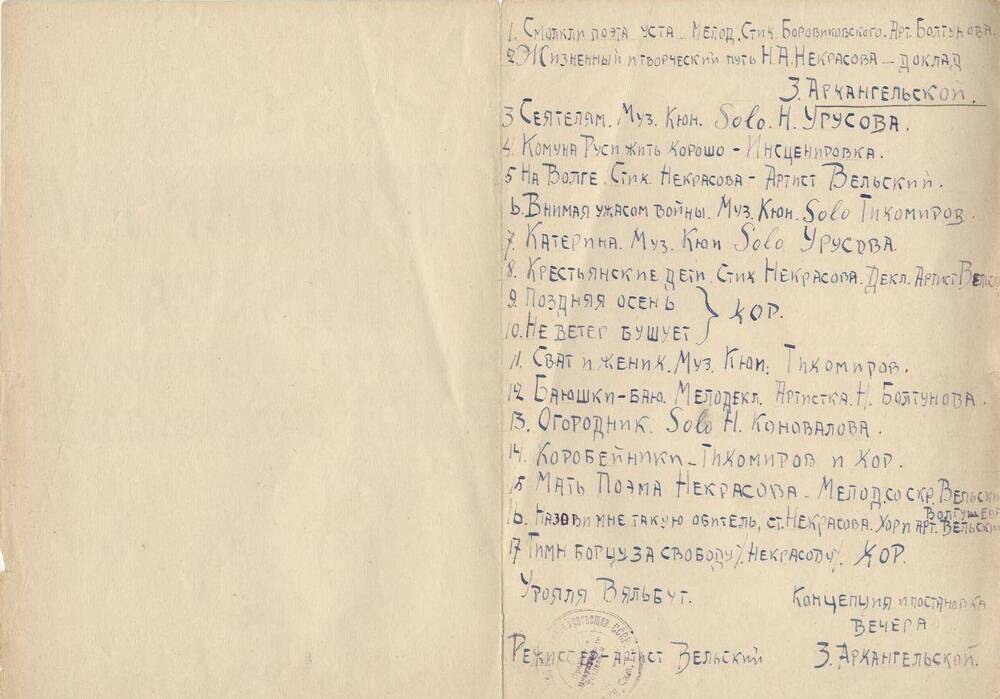 1. Смолкли поэта уста – Мелод. Стих. Боровиковского. Арт. Болтунова.
2 Жизненный и творческий путь Н.А. Некрасова – доклад
З. Архангельской.
3 Сеятелям. Муз. Кюи. Solo. Н. Урусова.
4. Кому на Руси жить хорошо – Инсценировка.
5 На Волге. Стих. Некрасова – Артист Вельский.
6. Внимая ужасом войны. Муз. Кюи. Solo Тихомиров.
7. Катерина. Муз. Кюи Solo Урусова.
8. Крестьянские дети. Стих Некрасова. Декл. Артист Вельск
9. Поздняя осень
10. Не ветер бушует } Хор.
11. Сват и жених. Муз. Кюи. Тихомиров.
12 Баюшки-баю. Мелодекл. Артистка. Н. Болтунова.
13. Огородник. Solo Н. Коновалова.
14. Коробейники – Тихомиров и хор.
15 Мать Поэма Некрасова – Мелод. со скр. Вельски
Волгушева
16. Назови мне такую обитель, ст. Некрасова. Хор и арт. Вельский
17 Гимн борцу за свободу /Некрасову/. Хор.
У рояля Вяльбут.
Концепция и постановка
вечера
Режиссер – артист Вельский З. Архангельской.